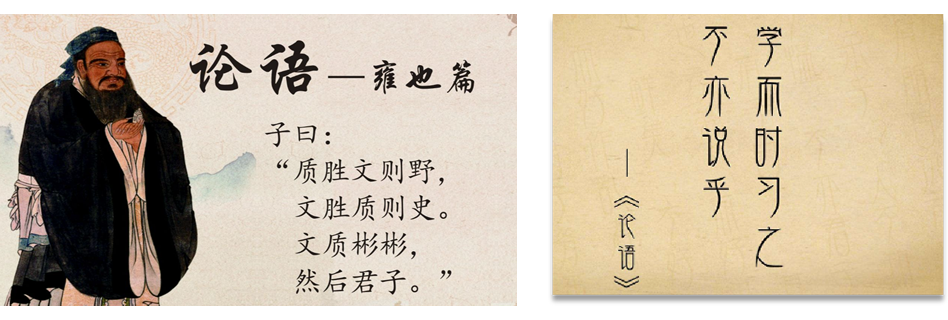 论语—雍也篇
子曰：
“质胜文则野，
文胜质则史。
文质彬彬，
然后君子。”
学而时习之
不亦说乎
—《论语》